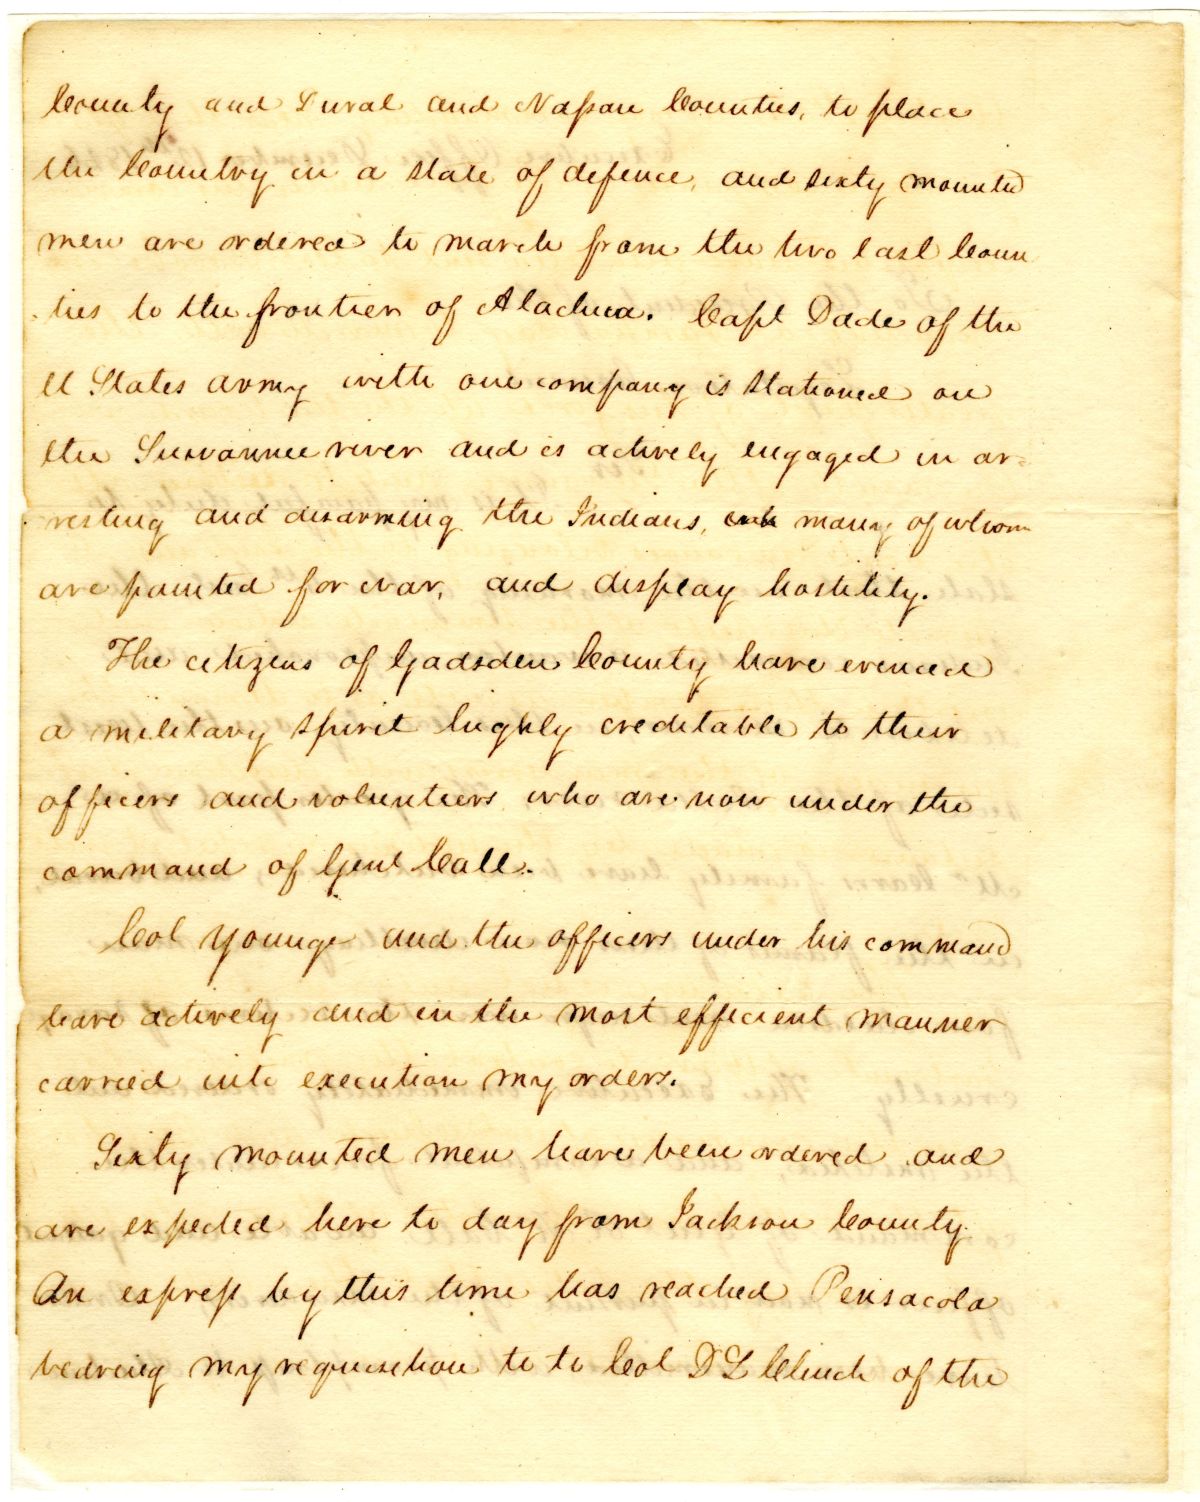 County and Duval and Nassau Counties, to place
the Country in a state of defence, and sixty mounted
men are ordered to march from the two last Coun
-ties to the frontier of Alachua. Capt Dade of the
U States army with one company is stationed on
the Suwannee river and is actively engaged in ar-
resting and disarming the Indians, many of whom
are painted for war, and display hostility.
The citizens of Gadsden County have evinced
a military spirit highly creditable to their
officers and volunteers who are now under the
command of Genl Call.
Col Younge and the officers under his command
have actively and in the most efficient manner
carried into execution my orders.
Sixty mounted men have been ordered and
are expected here to day from Jackson County.
An express by this time has reached Pensacola
bearing my requisition to to Col D L Clinch of the